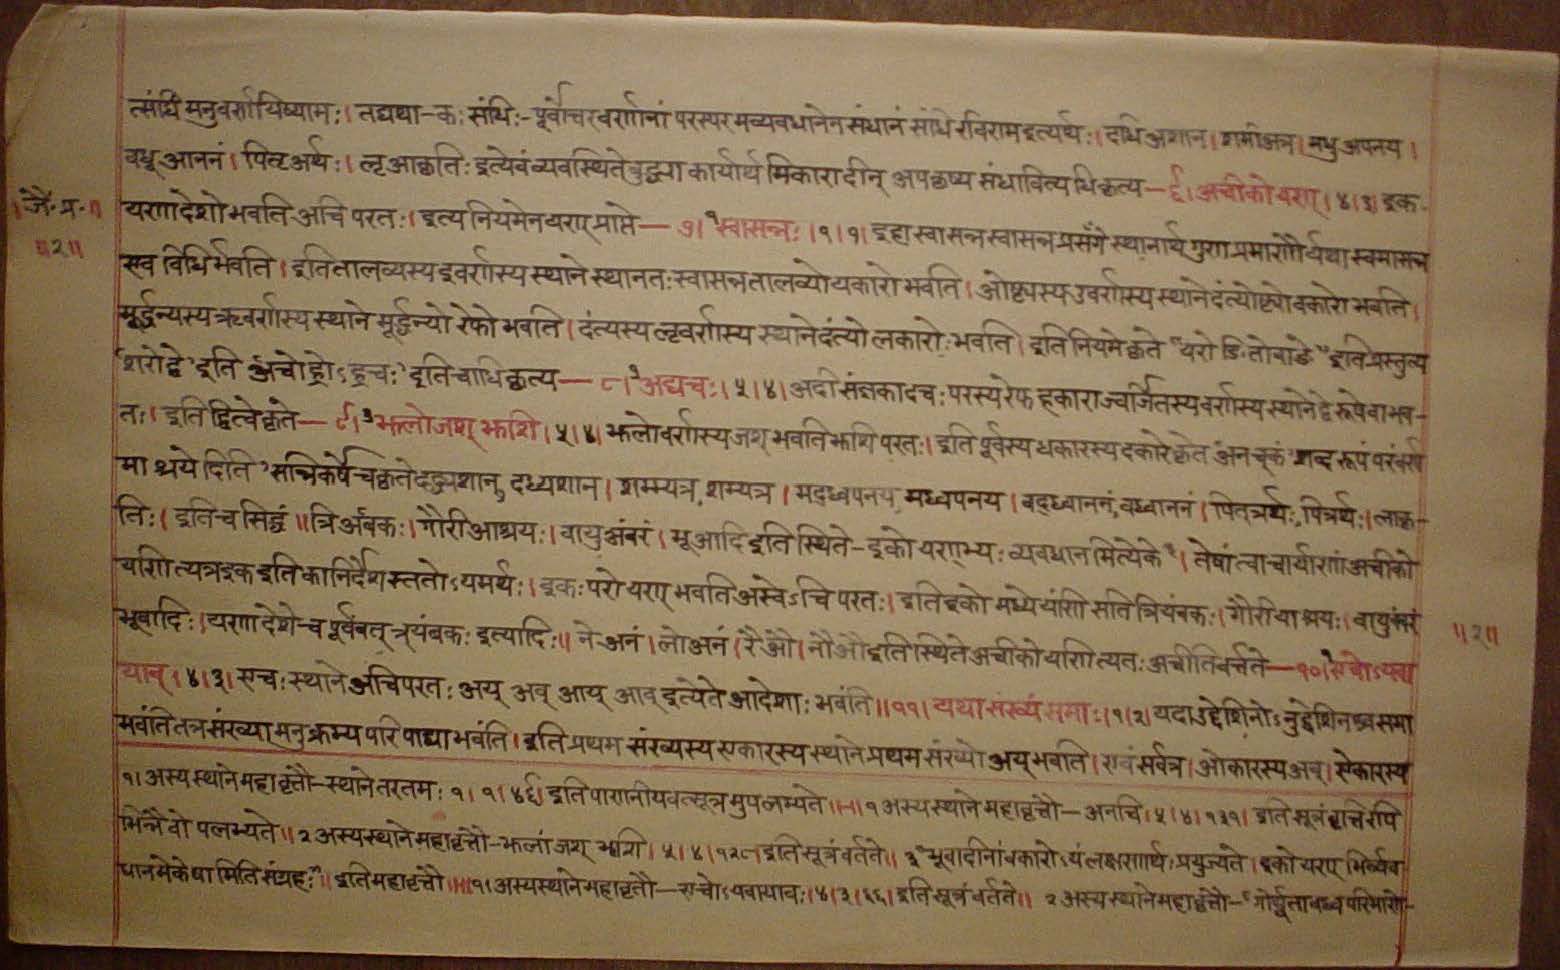 त्संधिमनुवर्णयिष्यामः। तद्यथा-कः संधिः-पूर्वोत्तरवर्णानां परस्परमव्यवधानेन संधानं संधिरविराम इत्यर्थः। दधि अशान। शमी अत्र। मधु अपनय।
वधू आननं। पितृ अर्थः। लृ आकृतिः इत्येवं व्यवस्थिते बुद्ध्या कार्यार्थमिकारादीन् अपकृष्य संधावित्यधिकृत्य— ६। अचीको यण्। ४।३। इक-
।जै॰प्र॰॥
यणादेशो भवति अचि परतः। इत्यनियमेन यण्प्राप्ते— ७। १स्वासन्नः।१।१। इहास्वासन्नस्वासन्नप्रसंगे स्थानार्थगुणप्रमाणैर्यथास्वमासन्न
॥२॥
एव विधिर्भवति। इति तालव्यस्य इवर्णस्य स्थाने स्थानतः स्वासन्नतालव्यो यकारो भवति। ओष्ठ्यस्य उवर्णस्य स्थाने दंत्योष्ठ्यो वकारो भवति।
मूर्द्धन्यस्य ऋवर्णस्य स्थाने मूर्द्धन्यो रेफो भवति। दंत्यस्य लृवर्णस्य स्थाने दंत्यो लकारोः भवति। इति नियमे कृते “यरो ङितो वा ङे” इति प्रस्तुत्य
‘शरो द्वे’ इति ‘अचो ह्रोऽह्रचः’ इति चाधिकृत्य— ८। १अद्यचः।५।४। अदीसंज्ञकादचः परस्य रेफहकाराज्वर्जितस्य वर्णस्य स्थाने द्वे रूपे वा भव-
तः। इति द्वित्वे कृते— ९।२झलो जश् झशि।५।४। झलो वर्णस्य जश् भवति झशि परतः। इति पूर्वस्य धकारस्य दकारे कृते ‘अनच्कं शब्दरूपं परं वर्ण
माश्रयेदिति’ सन्निकर्षे च कृते दद्ध्यशान, दध्यशान। शम्म्यत्र, शम्यत्र। मद्ध्वपनय, मध्वपनय। वद्ध्वाननं, वध्वाननं। पित्त्रर्थः, पित्रर्थः। लाकृ-
तिः। इति च सिद्धं॥ त्रि अंबकः। गौरी आश्रयः। वायु अंबरं। भू आदि इति स्थिते- इको यण्भ्यः व्यवधानमित्येके। तेषां त्वाचार्याणां अचीको
यणित्यत्र इक इति कानिर्देशस्ततोऽयमर्थः। इकः परो यण् भवति अस्वेऽचि परतः। इति इको मध्ये यणि सति त्रियंबकः। गौरीयाश्रयः। वायुवंबरं
भूवादिः। यणादेशे च पूर्ववत् त्र्यंबकः इत्यादिः॥ ने अनं। लो अनं। रै औ। नौ औ इति स्थिते अचीको यणित्यतः अचीति वर्त्तते— १०। एचोऽयवा
॥२॥
याव्।४।३। एचः स्थाने अचि परतः अय् अव् आय् आव् इत्येते आदेशाः भवंति॥ ११। यथासंख्यं समाः।१।२। यदा उद्देशिनोऽनुद्देशिनश्च समा
भवंति तत्र संख्यामनुक्रम्य परिपाट्या भवंति। इति प्रथमसंख्यस्य एकारस्य स्थाने प्रथमसंख्यो अय् भवति। एवं सर्वत्र। ओकारस्य अव्। ऐकारस्य
१। अस्य स्थाने महावृत्तौ-स्थानेतरतमः १।१।४६। इति पाणिनीयवत्सूत्रमुपलभ्यते॥ १ अस्य स्थाने महावृत्तौ— अनचि।५।४।१३१। इति सूत्रं वृत्तिरपि
भिन्नैवोपलभ्यते॥ २ अस्य स्थाने महावृत्तौ-झलां जश् झशि।५।४।१२८ इति सूत्रं वर्तते॥ ३ “भूवादीनां वकारोऽयं लक्षणार्थः प्रयुज्यते। इको यण्भिर्व्यव
धानमेकेषामिति संग्रहः”॥ इति महावृत्तौ॥ १। अस्य स्थाने महावृत्तौ— एचोऽयवायावः।४।३।६६। इति सूत्रं वर्तते॥ २ अस्य स्थाने महावृत्तौ-